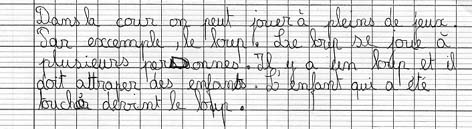 Dans la cour on peut jouer à pleins de jeux.
Par excemple, le loup. Le loup se joue à
plusieurs personnes. Il y a un loup et il
doit attraper des enfants. L'enfant qui a été
touché devint le loup.